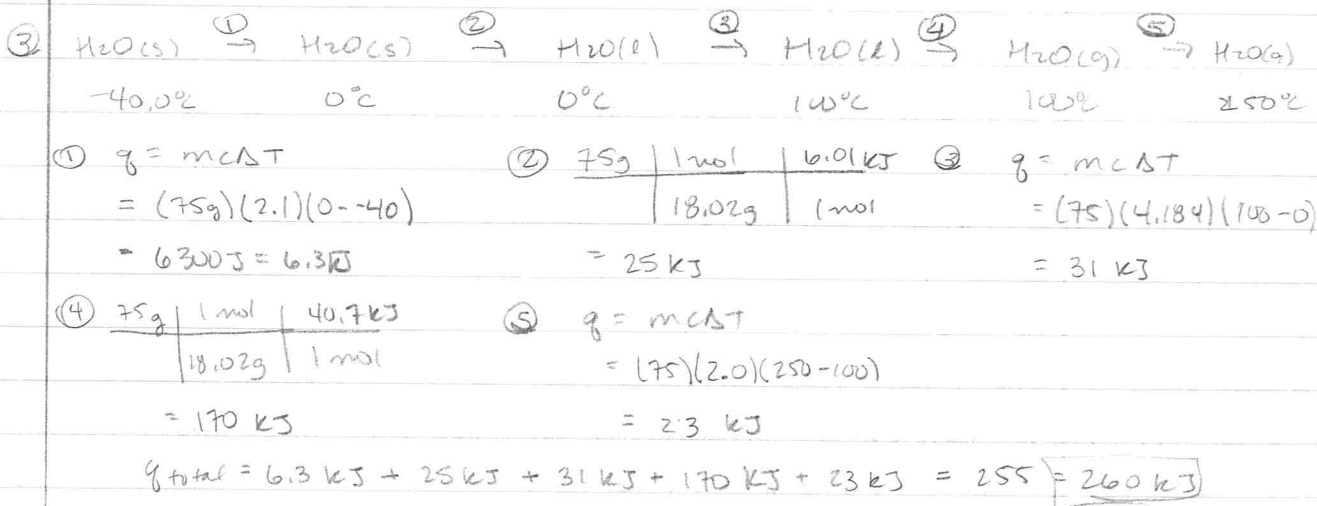 ③ H₂O(s) ①→ H₂O(s) ②→ H₂O(l) ③→ H₂O(l) ④→ H₂O(g) ⑤→ H₂O(g)
-40.0°C 0°C 0°C 100°C 100°C 250°C
① q = mcΔT
= (75g)(2.1)(0--40)
= 6300J = 6.3kJ
② 75g | 1mol | 6.01kJ
18.02g | 1mol
= 25 kJ
③ q = mcΔT
= (75)(4.184)(100-0)
= 31 kJ
④ 75g | 1 mol | 40.7kJ
18.02g | 1 mol
= 170 kJ
⑤ q = mcΔT
= (75)(2.0)(250-100)
= 23 kJ
q total = 6.3 kJ + 25kJ + 31kJ + 170 kJ + 23 kJ = 255 = 260 kJ